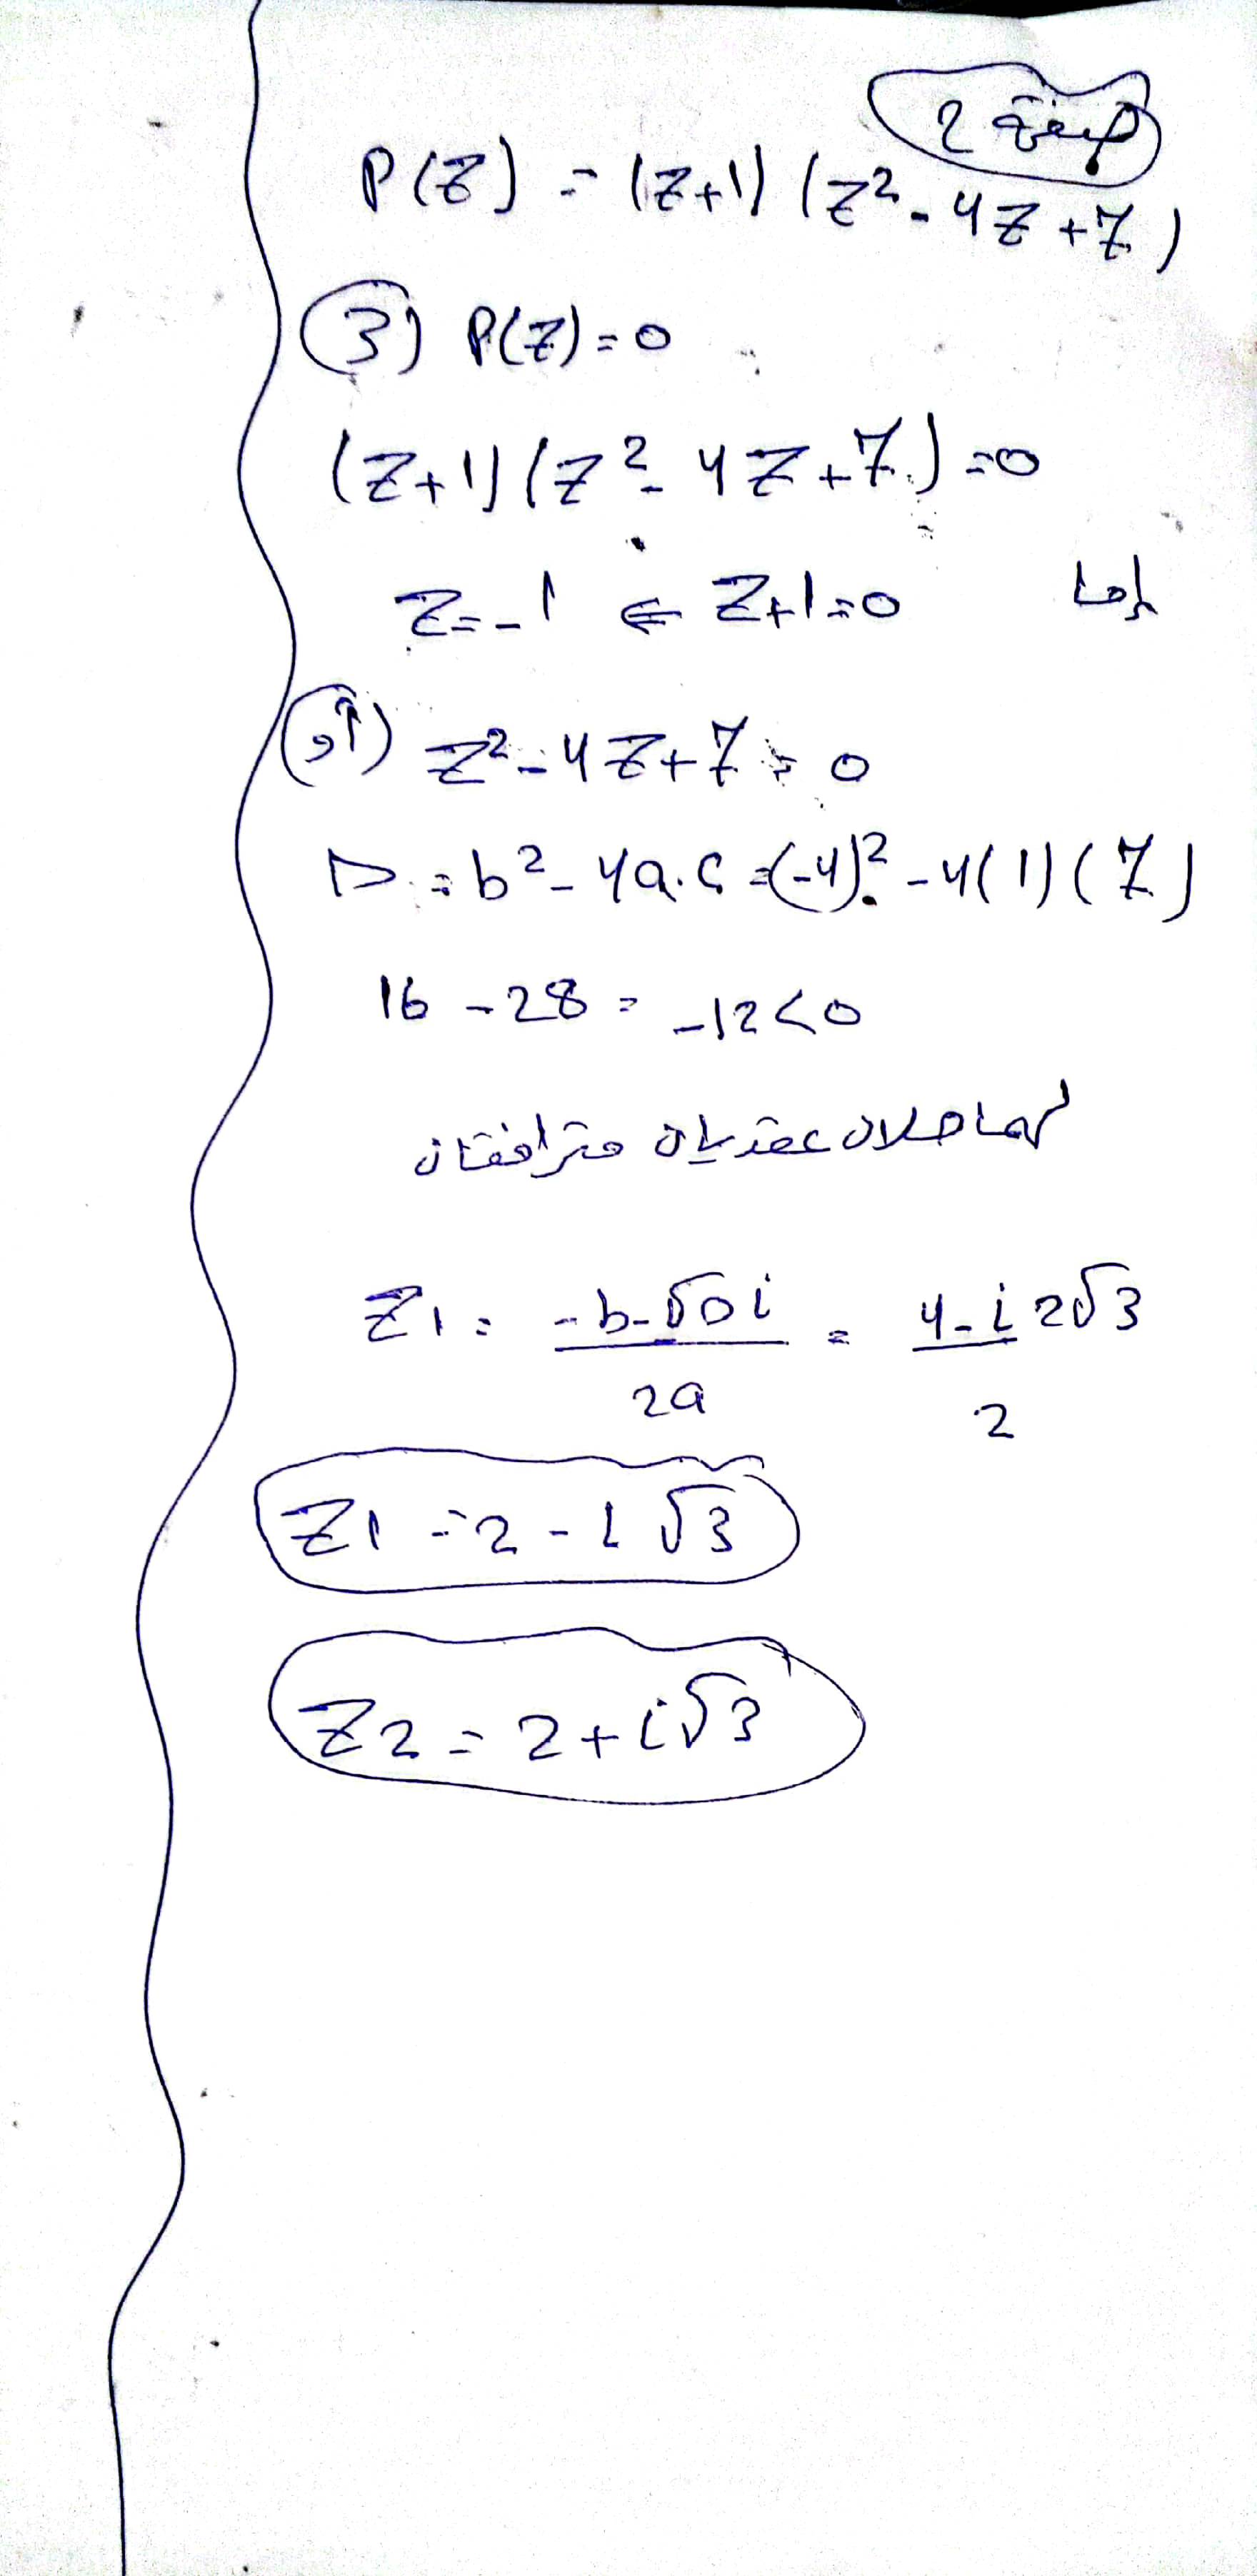 صيغة 2
P(Z) = (Z+1) (Z² - 4Z + 7)
3) P(Z) = 0
(Z+1)(Z² - 4Z + 7) = 0
إما Z+1=0 ⇐ Z=-1
أو) Z² - 4Z + 7 = 0
Δ = b² - 4a.c = (-4)² - 4(1)(7)
16 - 28 = -12 < 0
لها حلان عقديان مترافقان
Z1 = (-b-√Δ i)/2a = (4 - i 2√3)/2
Z1 = 2 - i√3
Z2 = 2 + i√3